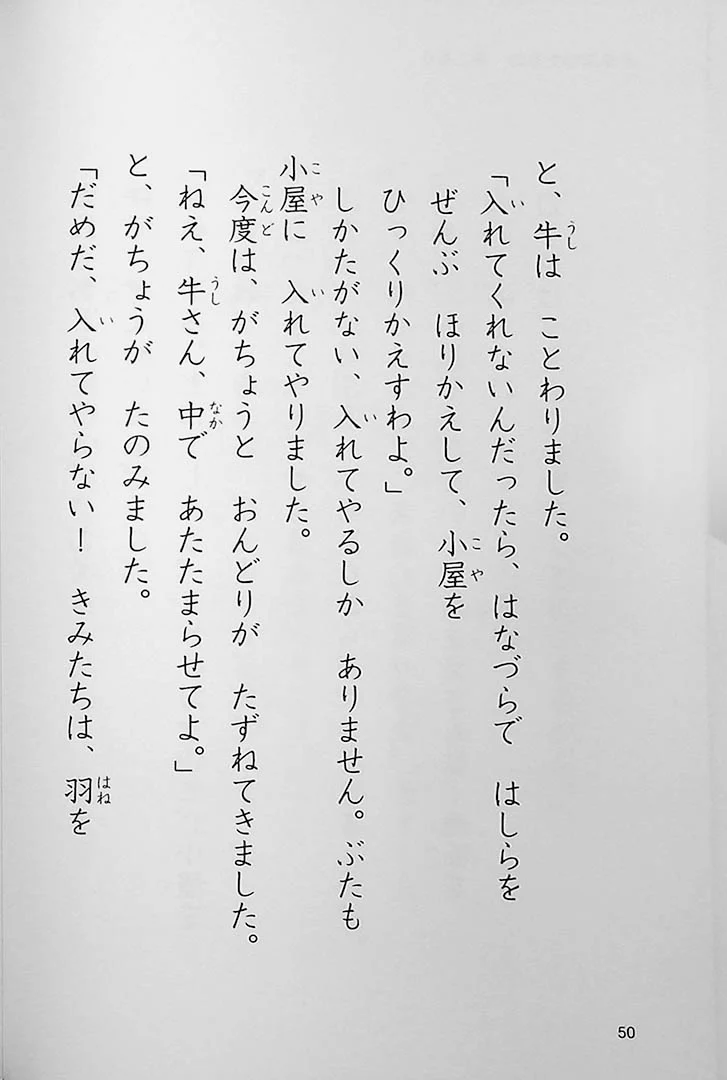 と、牛は　ことわりました。
「入れてくれないんだったら、はなづらで　はしらを
ぜんぶ　ほりかえして、小屋を
ひっくりかえすわよ。」
しかたがない、入れてやるしか　ありません。ぶたも
小屋に　入れてやりました。
今度は、がちょうと　おんどりが　たずねてきました。
「ねえ、牛さん、中で　あたたまらせてよ。」
と、がちょうが　たのみました。
「だめだ、入れてやらない！　きみたちは、羽を
50